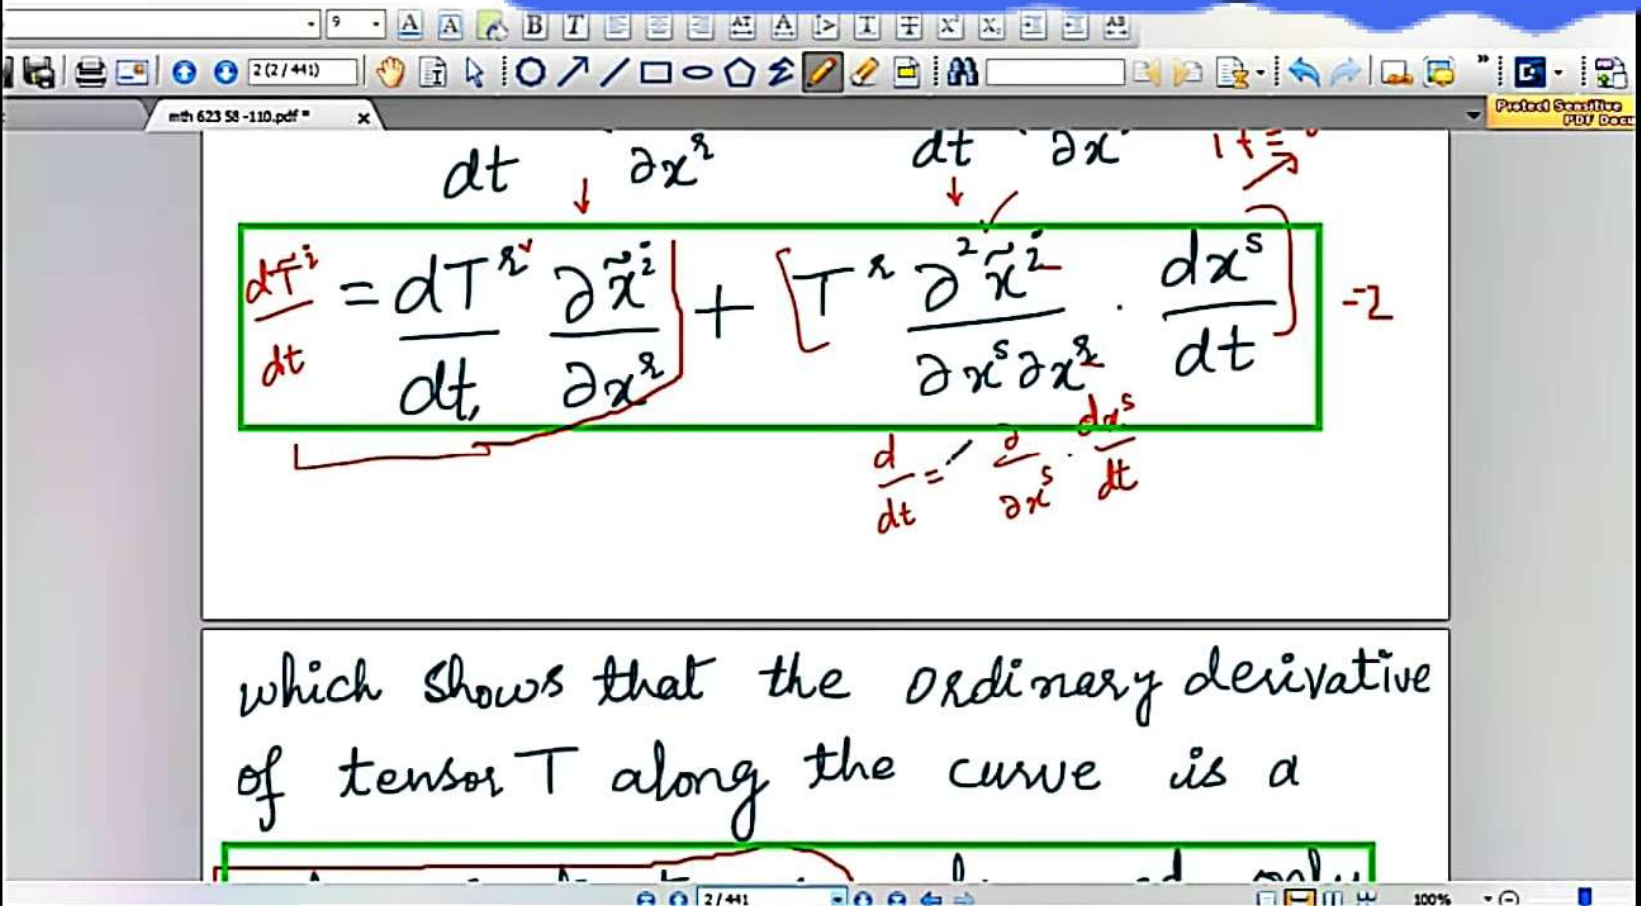 9
2 (2 / 441)
mth 623 58 -110.pdf *
Protect Sensitive
PDF Docu
dt ∂x^r dt ∂x
dT̃^i/dt = dT^r/dt ∂x̃^i/∂x^r + [T^r ∂²x̃^i/∂x^s∂x^r · dx^s/dt] -2
d/dt = ∂/∂x^s · dx^s/dt
which shows that the ordinary derivative
of tensor T along the curve is a
2 / 441
100%